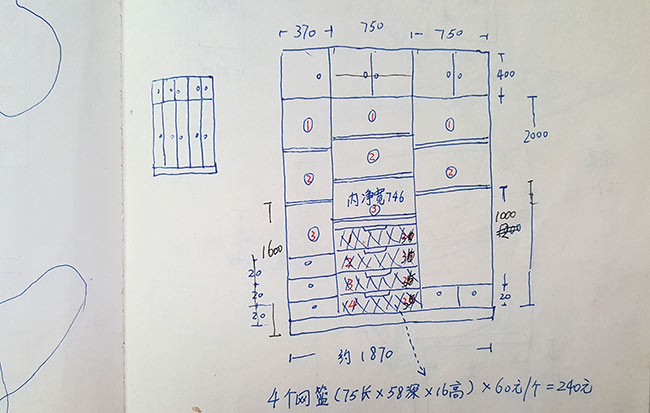 370 750 750
400
① ① ①
2000
② ② ②
内净宽746
③
1000
1600
③
1
2
3
4
20
20
20
20
约1870
4个网篮(75长×58深×16高)×60元/个=240元